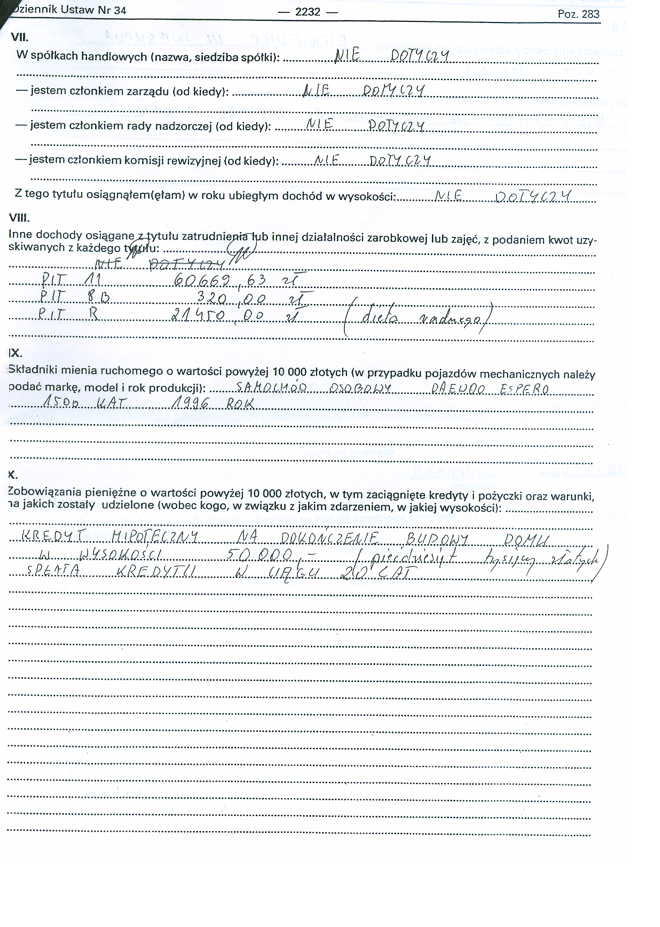 Dziennik Ustaw Nr 34 — 2232 — Poz. 283
VII.
W spółkach handlowych (nazwa, siedziba spółki): NIE DOTYCZY
— jestem członkiem zarządu (od kiedy): NIE DOTYCZY
— jestem członkiem rady nadzorczej (od kiedy): NIE DOTYCZY
— jestem członkiem komisji rewizyjnej (od kiedy): NIE DOTYCZY
Z tego tytułu osiągnąłem(ęłam) w roku ubiegłym dochód w wysokości: NIE DOTYCZY
VIII.
Inne dochody osiągane z tytułu zatrudnienia lub innej działalności zarobkowej lub zajęć, z podaniem kwot uzy-
skiwanych z każdego tytułu:
NIE DOTYCZY
PIT 11 60669,63 zł
PIT 8B 320,00 zł
PIT R 21450,00 zł (dieta radnego)
IX.
Składniki mienia ruchomego o wartości powyżej 10 000 złotych (w przypadku pojazdów mechanicznych należy
podać markę, model i rok produkcji): SAMOCHÓD OSOBOWY DAEWOO ESPERO
1500 KAT 1996 ROK
X.
Zobowiązania pieniężne o wartości powyżej 10 000 złotych, w tym zaciągnięte kredyty i pożyczki oraz warunki,
na jakich zostały udzielone (wobec kogo, w związku z jakim zdarzeniem, w jakiej wysokości):
KREDYT HIPOTECZNY NA DOKOŃCZENIE BUDOWY DOMU
W WYSOKOŚCI 50 000,- (pięćdziesiąt tysięcy złotych)
SPŁATA KREDYTU W CIĄGU 20 LAT